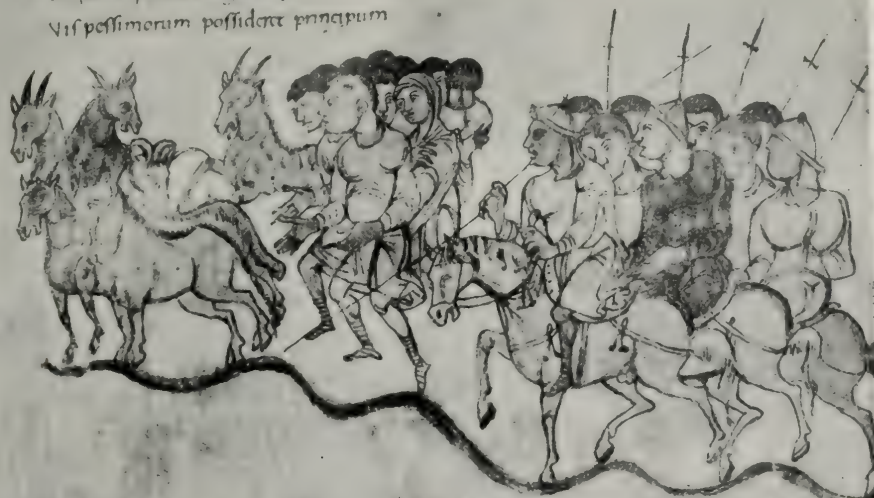 Vis pessimorum possideret principum